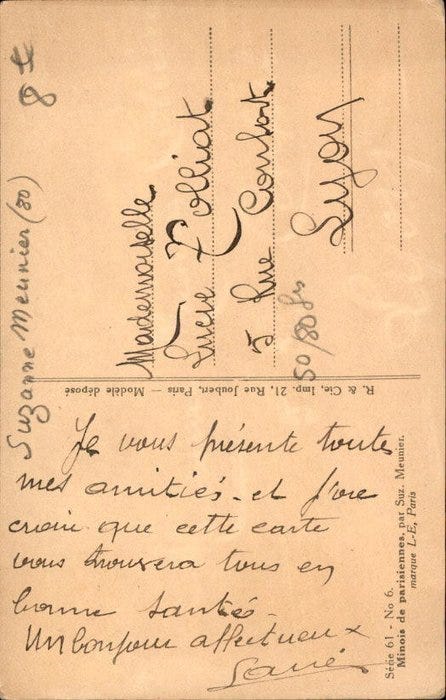 Suzanne Meunier (80)
Mademoiselle
Lucie
5 Rue
Lyon
50/80
R. & Cie, Imp. 21, Rue Joubert, Paris — Modèle déposé
Je vous présente toutes
mes amitiés - et j'ose
croire que cette carte
vous trouvera tous en
bonne santé.
Un bonjour affectueux
Série 61 - No 6.
Minois de parisiennes, par Suz. Meunier.
marque L-E, Paris